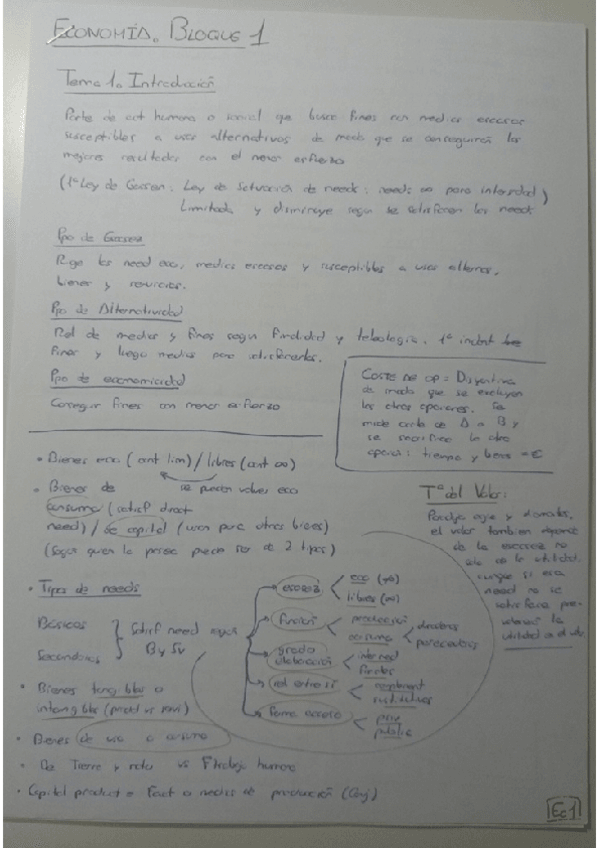 ECONOMÍA. BLOQUE 1
Tema 1. Introducción
Parte de act humana o social que busca fines con medios escasos
susceptibles a usos alternativos de modo que se conseguirán los
mejores resultados con el menor esfuerzo
(1ª Ley de Gossen: Ley de Saturación de needs: needs no para intensidad)
Limitada y disminuye según se satisfacen las needs
Ppo de Escasez
Rige las need eco, medios escasos y susceptibles a usos alternos,
bienes y servicios.
Ppo de Alternatividad
Rel de medios y fines según finalidad y teleología. 1º
fines y luego medios para satisfacerlos.
Ppo de economicidad
Conseguir fines con menor esfuerzo
COSTE DE OP = Disyuntiva
de modo que se excluyen
las otras opciones. Se
mide cada de A a B y
se sacrifica la otra
opción: tiempo y bens = €
• Bienes eco (cant lim) / libres (cant ∞)
se pueden volver eco
• Bienes de
consumo (satisf direct
need) / de capital (usan para otros bienes)
(Según quien lo posea puede ser de 2 tipos)
Tª del Valor:
Paradoja agua y diamantes,
el valor también depende
de la escasez no
solo de la utilidad,
aunque si esa
need no se
satisficiera
la
utilidad
• Tipos de needs
Básicas
Secundarias
Satisf need
B y Sv
escasez
eco
libres (∞)
función
producción
consumo
duraderos
perecederos
grado
elaboración
intermed
finales
rel entre sí
complement
sustitutivos
forma acceso
priv
públic
• Bienes tangibles o
intangibles (prod vs servi)
• Bienes de uso o consumo
• De Tierra y natu vs F trabajo humano
• Capital product = Fact o medios de producción
Ec1